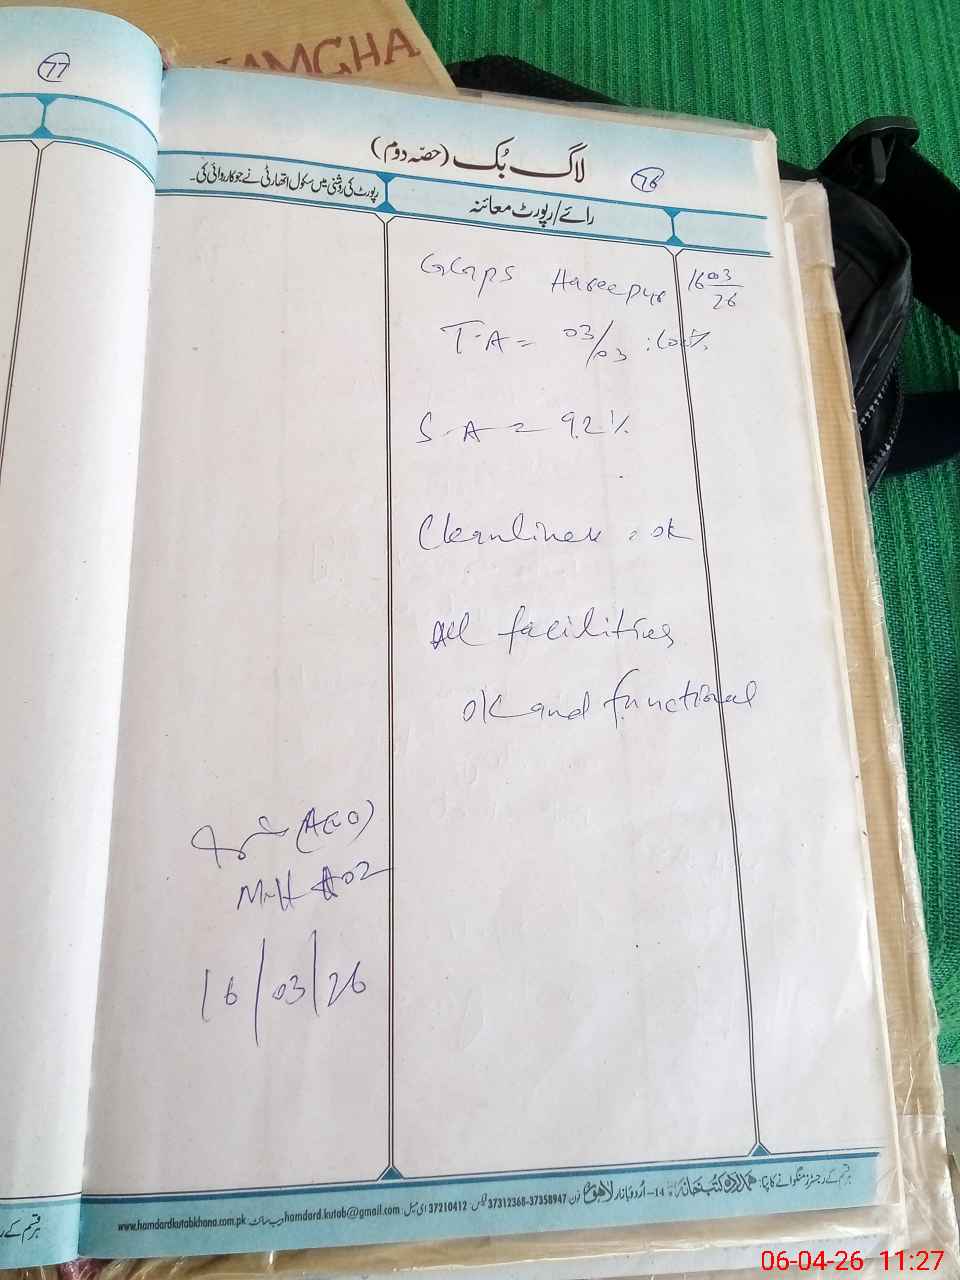 NAMGHA
77
لاگ بُک (حصّہ دوم)
76
رائے/رپورٹ معائنہ
رپورٹ کی روشنی میں سکول اتھارٹی نے جو کاروائی کی۔
GGPS Hareepur 16 03/26
T-A = 03/03 : 100%
S-A = 92%
Cleanliness = ok
All facilities
ok and functional
(AEO)
M-H #02
16/03/26
ہر قسم کے رجسٹرز منگوانے کا پتا: ہمدرد کتب خانہ 14-اُردو بازار لاہور فون 37358947-37312368 فیکس 37210412 ای میل hamdard.kutab@gmail.com ویب سائٹ www.hamdardkutabkhana.com.pk
ہر قسم کے ر
06-04-26 11:27